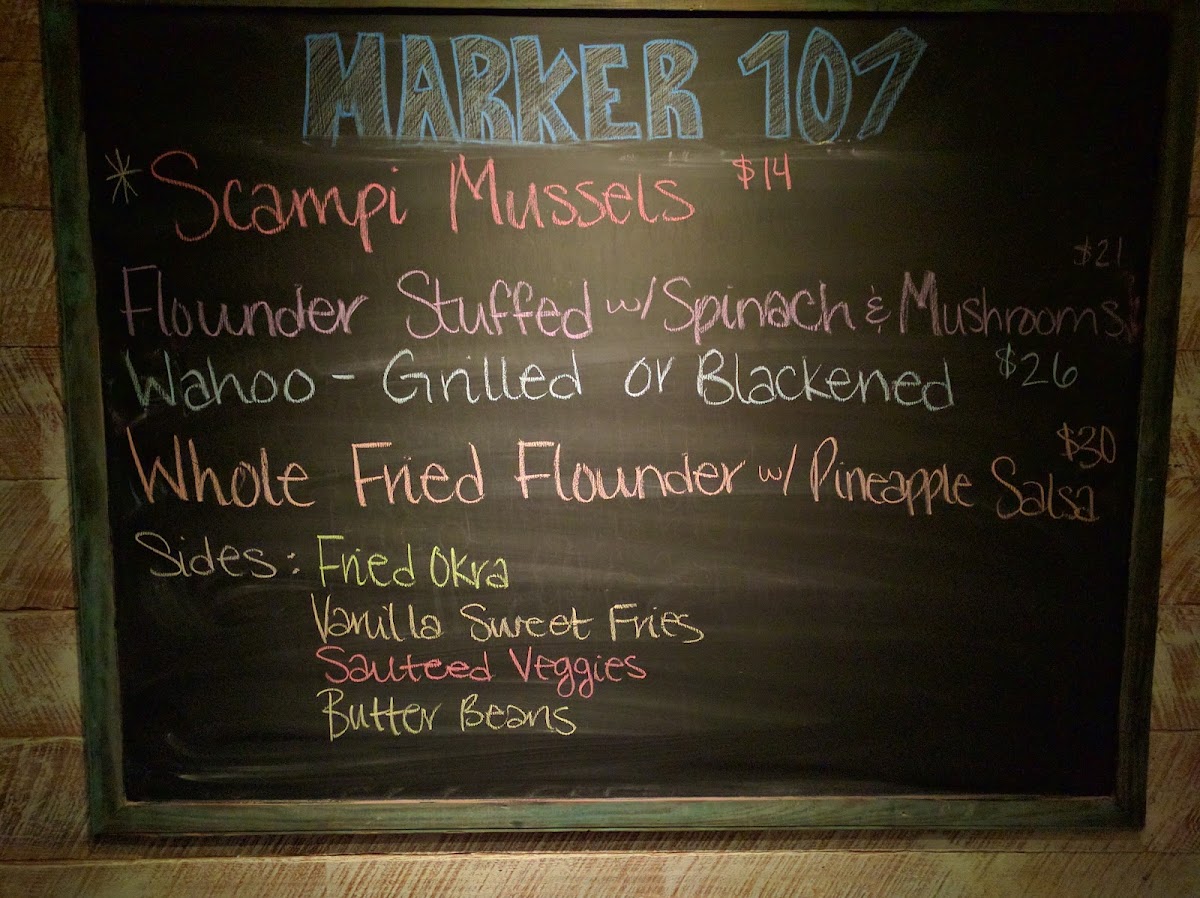 MARKER 107
* Scampi Mussels $14
$21
Flounder Stuffed w/ Spinach & Mushrooms
Wahoo - Grilled or Blackened $26
$30
Whole Fried Flounder w/ Pineapple Salsa
Sides: Fried Okra
Vanilla Sweet Fries
Sauteed Veggies
Butter Beans